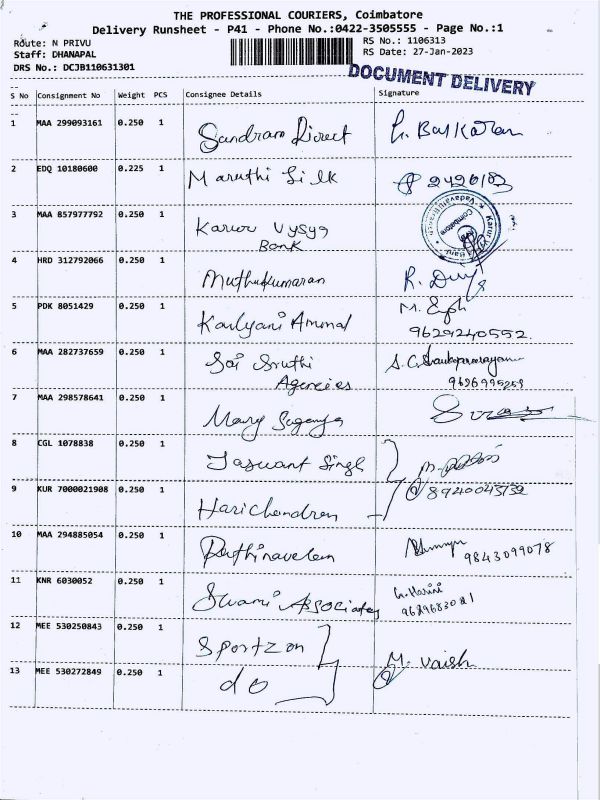 THE PROFESSIONAL COURIERS, Coimbatore
Delivery Runsheet - P41 - Phone No.:0422-3505555 - Page No.:1
Route: N PRIVU
RS No.: 1106313
Staff: DHANAPAL
RS Date: 27-Jan-2023
DRS No.: DCJB110631301
DOCUMENT DELIVERY
S No Consignment No Weight PCS Consignee Details Signature
1 MAA 299093161 0.250 1 Sandram Direct
2 EDQ 10180600 0.225 1 Maruthi Silk 2426183
3 MAA 857977792 0.250 1 Karur Vysya
Bank
Coimbatore
4 HRD 312792066 0.250 1 Muthukumaran
5 PDK 8051429 0.250 1 Kalyani Ammal
9629240552
6 MAA 282737659 0.250 1 Sai Sruthi
Agencies 9626995259
7 MAA 298578641 0.250 1 Mary Suganya
8 CGL 1078838 0.250 1 Jaswant Singh
9 KUR 7000021908 0.250 1 Harichandran
10 MAA 294885054 0.250 1 Rathinavelan 9843099078
11 KNR 6030052 0.250 1 Swami Associates G. Harini
9629683021
12 MEE 530250843 0.250 1 Sportzon
13 MEE 530272849 0.250 1 do M. Vaish